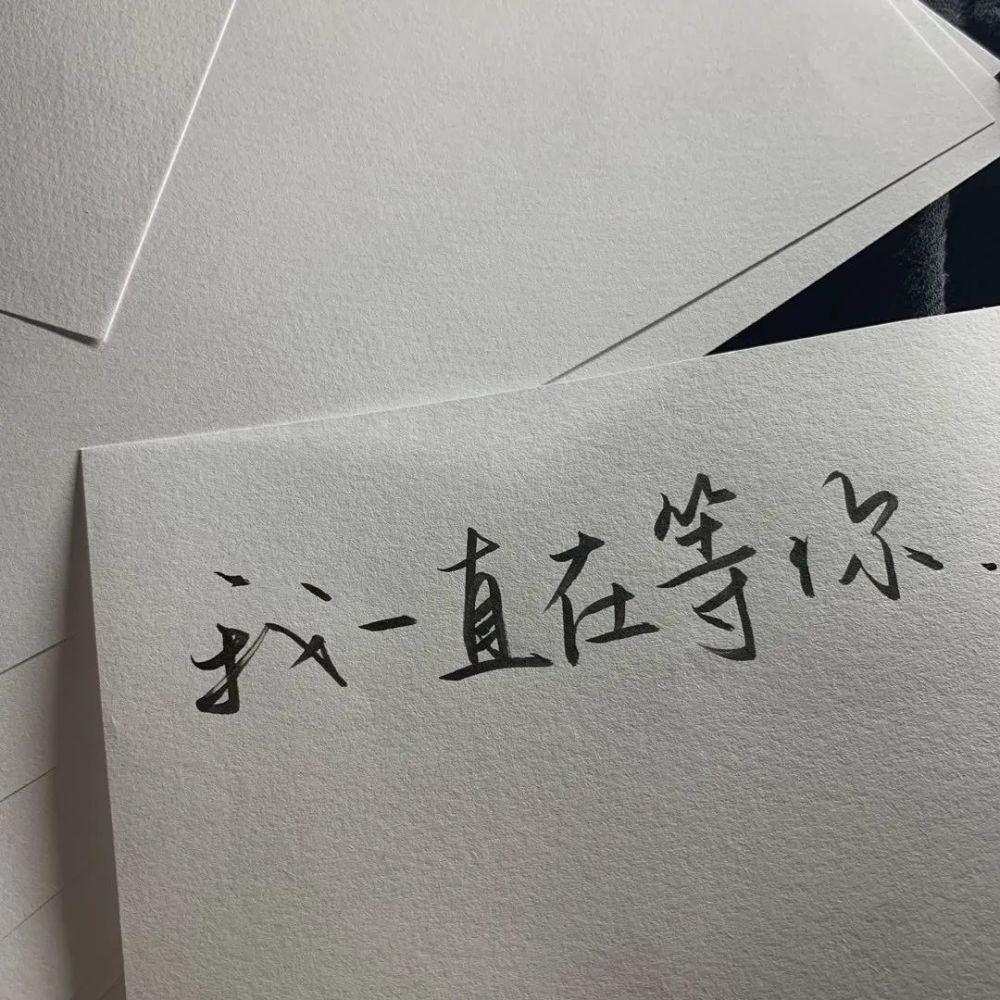 我一直在等你.